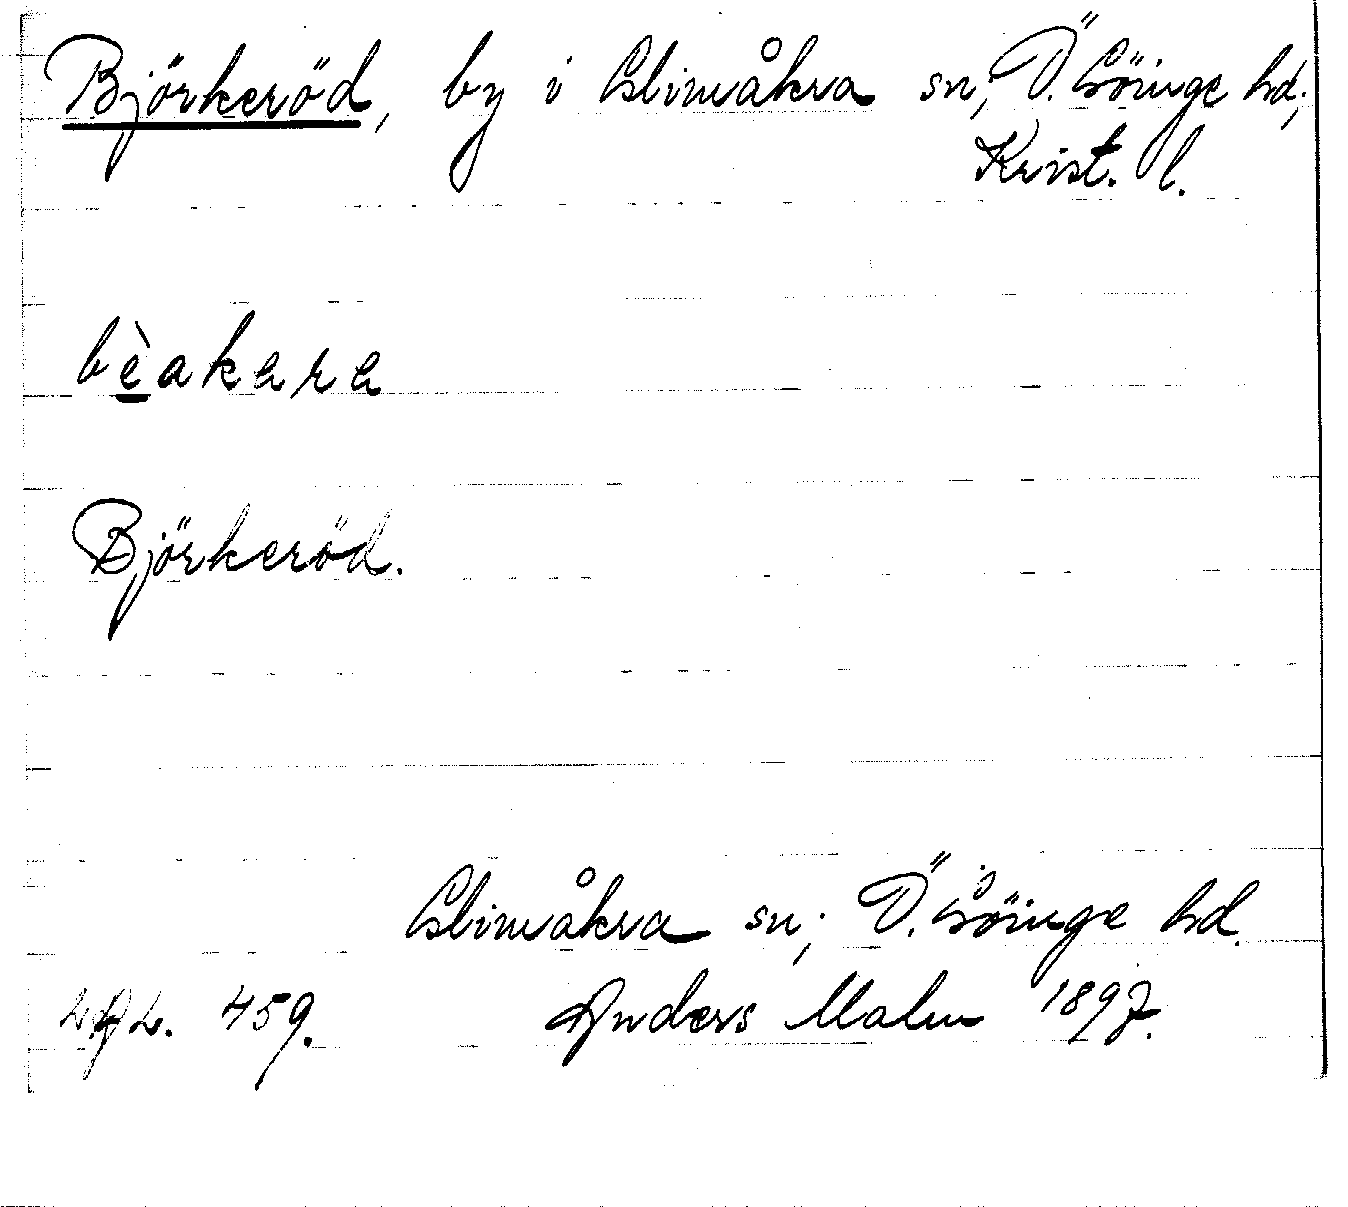 Björkeröd, by i Glimåkra sn, Ö. Göinge hd,
Krist. l.
bèakara
Björkeröd.
Glimåkra sn; Ö. Göinge hd.
459. Anders Malm 1897.